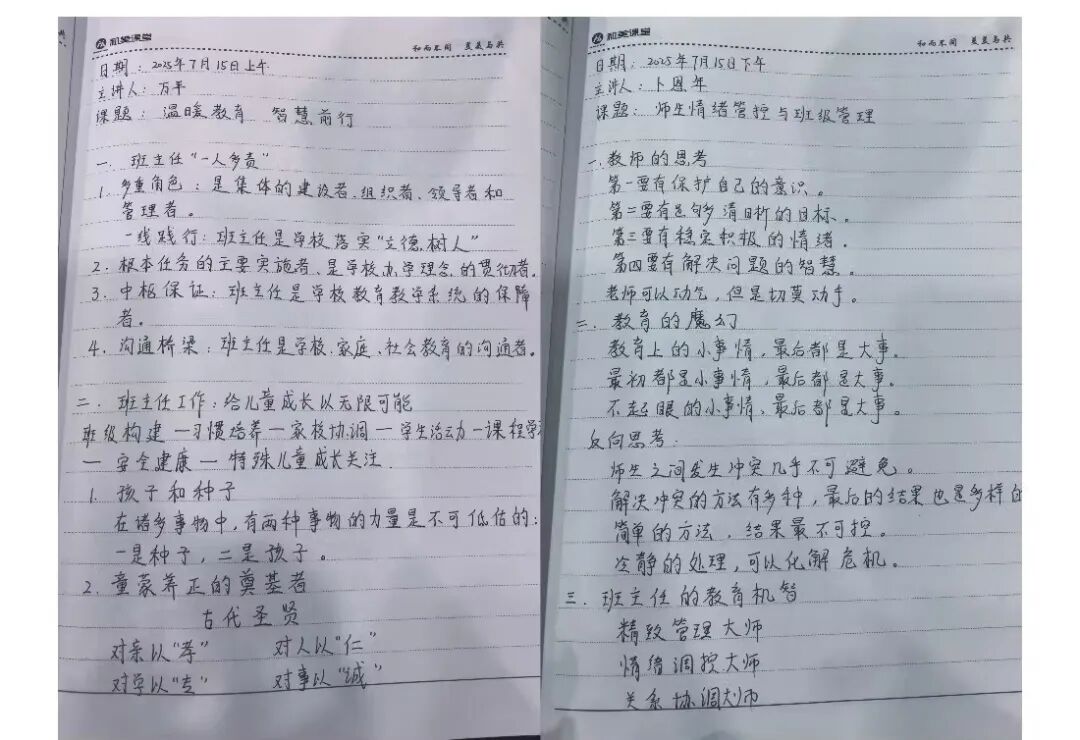 和美课堂
和而不同 美美与共
日期：2025年7月15日上午
主讲人：万平
课题：温暖教育 智慧前行
一. 班主任“一人多责”
1. 多重角色：是集体的建设者、组织者、领导者和
管理者。
一线践行：班主任是学校落实“立德树人”
2. 根本任务的主要实施者、是学校办学理念的贯彻者。
3. 中枢保证：班主任是学校教育教学系统的保障
者。
4. 沟通桥梁：班主任是学校、家庭、社会教育的沟通者。
二. 班主任工作：给儿童成长以无限可能
班级构建一习惯培养一家校协调一学生活动一课程学
一安全健康一特殊儿童成长关注.
1. 孩子和种子
在诸多事物中,有两种事物的力量是不可低估的：
一是种子，二是孩子。
2. 童蒙养正的奠基者
古代圣贤
对亲以“孝” 对人以“仁”
对学以“专” 对事以“诚”
和美课堂
和而不同 美美与共
日期：2025年7月15日下午
主讲人：卜恩年
课题：师生情绪管控与班级管理
一.教师的思考
第一要有保护自己的意识。
第二要有足够清晰的目标。
第三要有稳定积极的情绪.
第四要有解决问题的智慧。
老师可以动气，但是切莫动手。
二. 教育的魔幻
教育上的小事情，最后都是大事。
最初都是小事情，最后都是大事。
不起眼的小事情，最后都是大事。
反向思考：
师生之间发生冲突几乎不可避免。
解决冲突的方法有多种，最后的结果也是多样的
简单的方法，结果最不可控。
冷静的处理，可以化解危机。
三. 班主任的教育机智
精致管理大师
情绪调控大师
关系协调大师